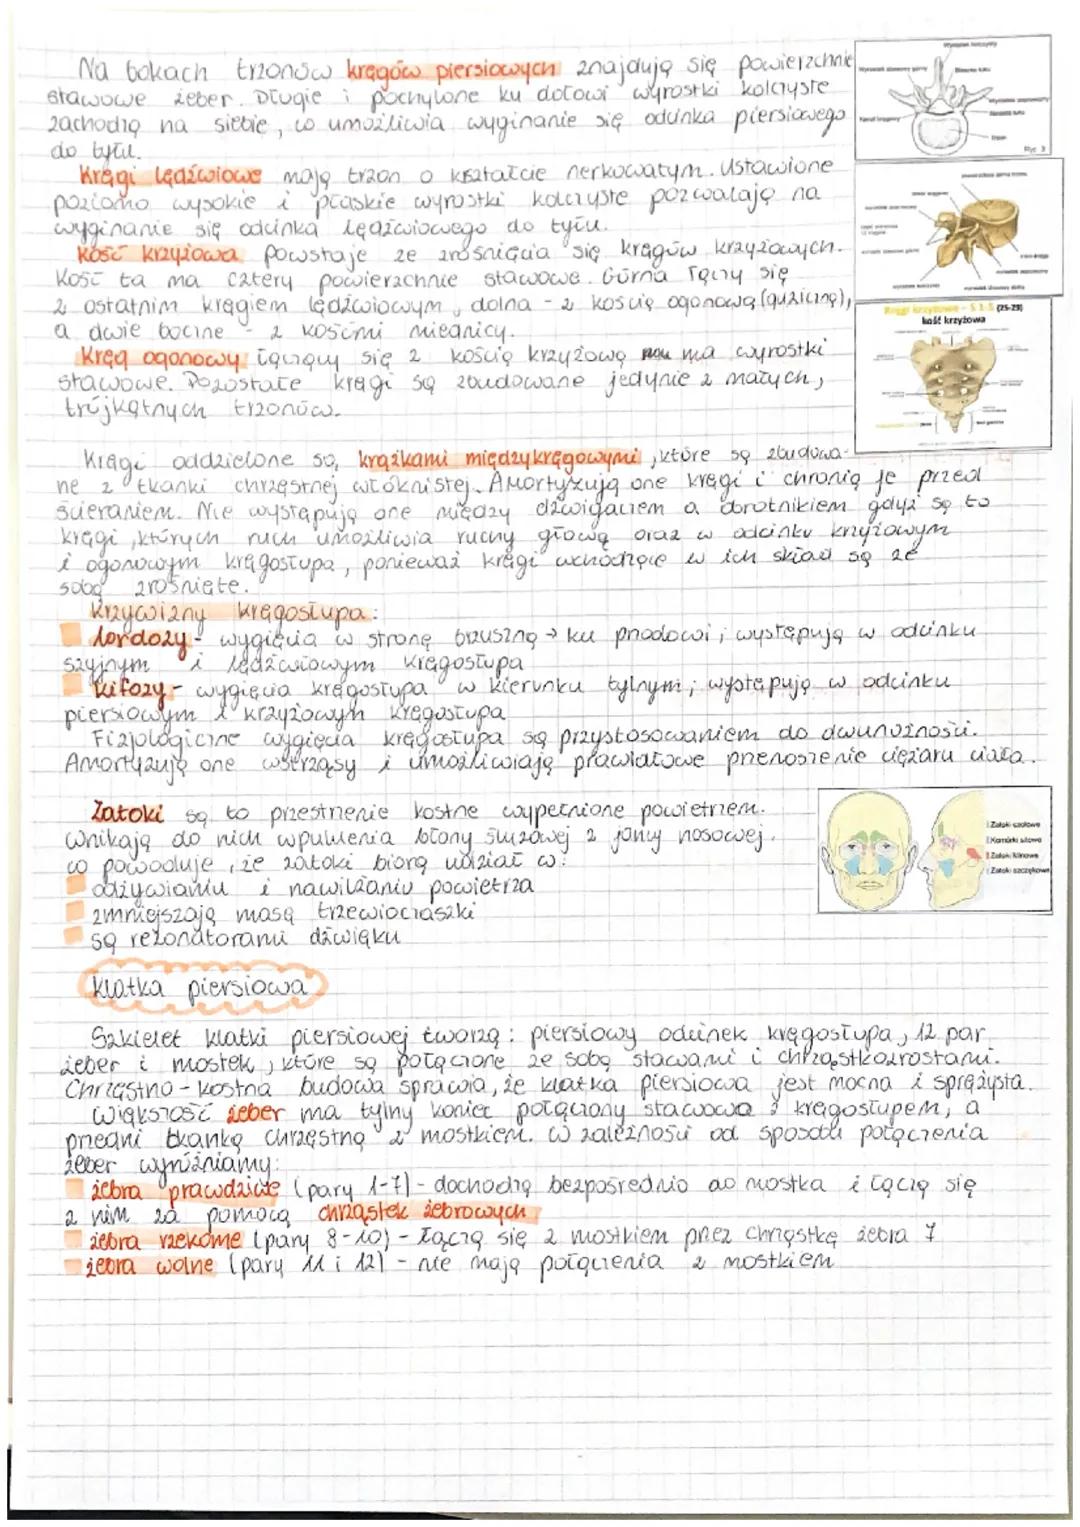 Na bokach trzonów kręgów piersiowych znajdują się powierzchnie
stawowe żeber. Długie i pochylone ku dołowi wyrostki kolczyste
zachodzą na siebie, co umożliwia wyginanie się odcinka piersiowego
do tyłu.
Kręgi lędźwiowe mają trzon o kształcie nerkowatym. Ustawione
poziomo wysokie i płaskie wyrostki kolczyste pozwalają na
wyginanie się odcinka lędźwiowego do tyłu.
Kość krzyżowa powstaje ze zrośnięcia się kręgów krzyżowych.
Kość ta ma cztery powierzchnie stawowe. Górna łączy się
z ostatnim kręgiem lędźwiowym, dolna - z kością ogonową (guziczną),
a dwie boczne - z kośćmi miednicy.
Kręg ogonowy łączący się z kością krzyżową ma wyrostki
stawowe. Pozostałe kręgi są zbudowane jedynie z małych,
trójkątnych trzonów.
Ryc 3
Kręgi krzyżowe - S 1-5 (25-29)
kość krzyżowa
Kręgi oddzielone są krążkami międzykręgowymi, które są zbudowa-
ne z tkanki chrzęstnej włóknistej. Amortyzują one kręgi i chronią je przed
ścieraniem. Nie występują one między dźwigaczem a obrotnikiem gdyż są to
kręgi, których ruch umożliwia ruchy głową oraz w odcinku krzyżowym
i ogonowym kręgosłupa, ponieważ kręgi wchodzące w ich skład są ze
sobą zrośnięte.
Krzywizny kręgosłupa:
lordozy - wygięcia w stronę brzuszną → ku przodowi; występują w odcinku
szyjnym i lędźwiowym kręgosłupa
kifozy - wygięcia kręgosłupa w kierunku tylnym; występują w odcinku
piersiowym i krzyżowym kręgosłupa
Fizjologiczne wygięcia kręgosłupa są przystosowaniem do dwunożności.
Amortyzują one wstrząsy i umożliwiają prawidłowe przenoszenie ciężaru ciała.
Zatoki są to przestrzenie kostne wypełnione powietrzem.
Wnikają do nich wpuklenia błony śluzowej z jamy nosowej.
co powoduje, że zatoki biorą udział w:
odżywianiu i nawilżaniu powietrza
zmniejszają masą trzewioczaszki
są rezonatorami dźwięku
Zatoki czołowe
Komórki sitowe
Zatoki klinowe
Zatoki szczękowe
klatka piersiowa
Szkielet klatki piersiowej tworzą: piersiowy odcinek kręgosłupa, 12 par
żeber i mostek, które są połączone ze sobą stawami i chrząstkozrostami.
Chrzęstno-kostna budowa sprawia, że klatka piersiowa jest mocna i sprężysta.
Większość żeber ma tylny koniec połączony stawowo z kręgosłupem, a
przedni tkanką chrzęstną z mostkiem. W zależności od sposobu połączenia
żeber wyróżniamy:
żebra prawdziwe (pary 1-7) - dochodzą bezpośrednio do mostka i łączą się
z nim za pomocą chrząstek żebrowych
żebra rzekome (pary 8-10) - łączą się z mostkiem przez chrząstkę żebra 7
żebra wolne (pary 11 i 12) - nie mają połączenia z mostkiem